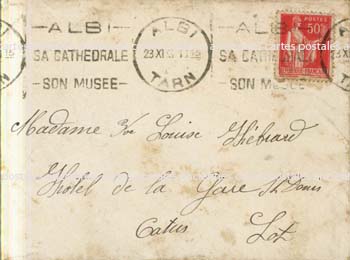 ALBI
SA CATHEDRALE
SON MUSEE
ALBI
23 XI
TARN
ALBI
SA CATHEDRALE
SON MUSEE
POSTES
50c
cartes postale
Madame Vve Louise Thébrard
Hôtel de la Gare St Denis
Catus Lot